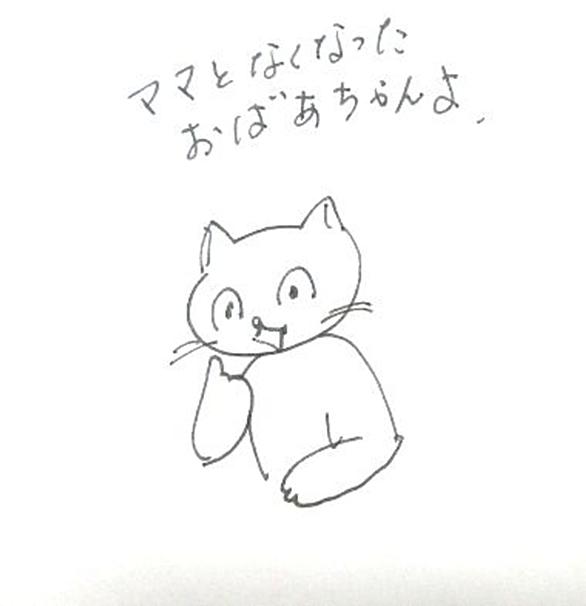 ママとなくなった
おばあちゃんよ、